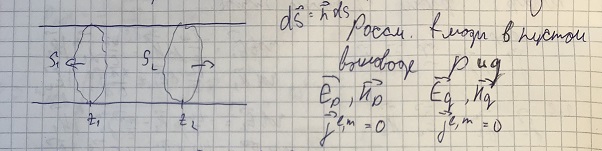 dS⃗ = n⃗ dS
Рассм. 2 моды в пустом
волноводе p и q
S₁ S₂ E⃗p, H⃗p E⃗q, H⃗q
z₁ z₂ j⃗ᵉ,ᵐ = 0 j⃗ᵉ,ᵐ = 0